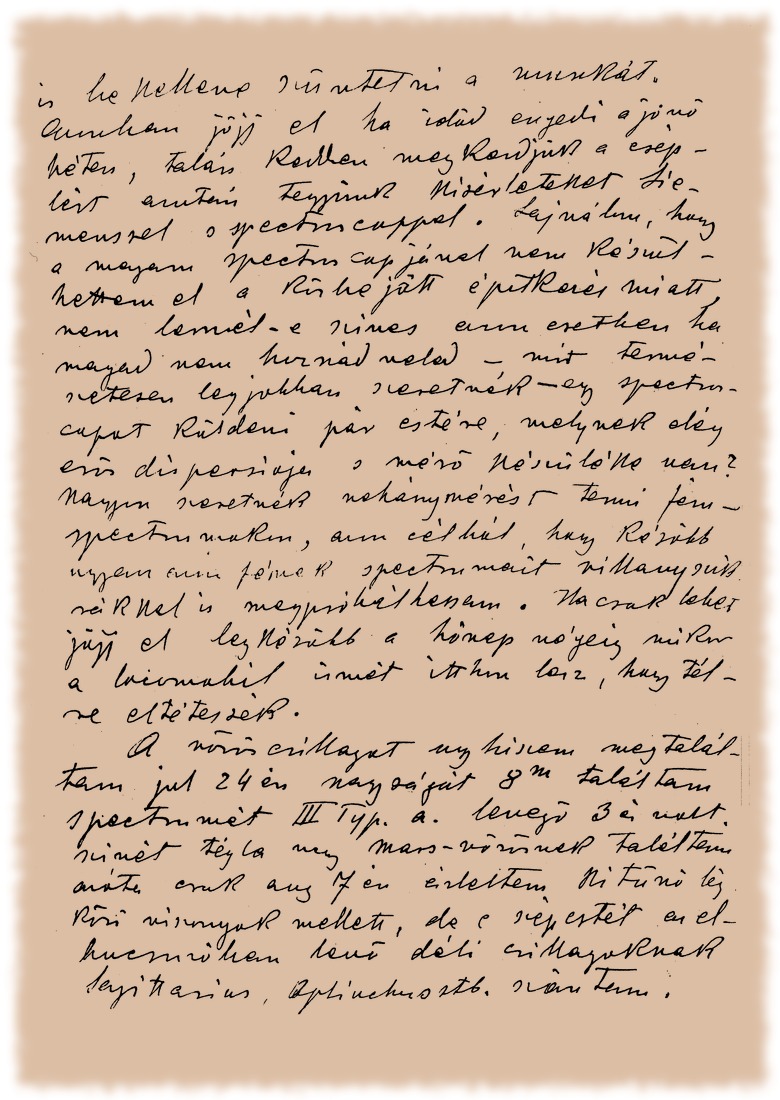 is be kellene szüntetni a munkát.
Azonban jöjj el ha időd engedi a jövő
héten, talán kedden megkezdjük a csép-
lést azután tegyünk kisérleteket Sie-
menssel s spectroscoppal. Sajnálom, hogy
a magam spectroscopjával nem készül-
hettem el a közbe jött épitkezés miatt,
nem lennél-e szives azon esetben ha
magad nem hoznád veled – mit termé-
szetesen legjobban szeretnék – egy spectros-
copot küldeni pár estére, melynek elég
erős dispersiója s mérő készüléke van?
Nagyon szeretnék nehány mérést tenni fém-
spectrumokon, azon célból, hogy később
ugyan azon fémek spectrumait villanyszik-
rákkal is megpróbálhassam. Ha csak lehet
jöjj el legkésőbb a hónap végeig mikor
a locomobil ismét itthon lesz, hogy tél-
re eltéteszék.
A vörös csillagot ugy hiszem megtalál-
tam jul 24én nagyságát 8m találtam
spectrumát III Typ. a. levegő 3as volt.
szinét tégla vagy mars-vörösnek találtam
azóta csak aug 7én észleltem kitünő lég
köri viszonyok mellett, de e szép estét az el-
bucsuzóban levő déli csillagoknak
Sagittarius, Ophiuchus stb. szántam.